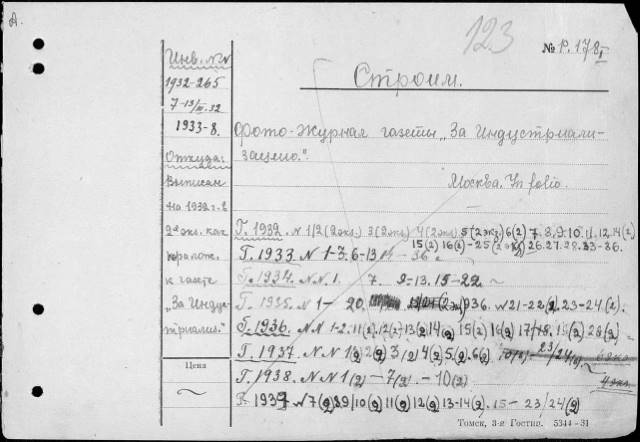 А.
123
№ Р. 178 I
Строим.
Инв. №№
1932-265
7-13/III.32
1933-8.
Откуда:
Выписан
на 1932 г. в
2ⁿ экз. как
прилож.
к газете
„За Инду-
стриализ."
Цена
~
Фото-Журнал газеты „За Индустриали-
зацию".
Москва. In folio.
Г. 1932. N 1/2 (2 экз.) 3 (2 экз.) 4 (2 экз.) 5 (2 экз.) 6 (2) 7. 8. 9. 10. 11. 12. 14 (2)
15 (2) 16 (2) – 25 (2 экз.) 26. 27. 28. 33-36.
Г. 1933. N 1-3. 6-13 14 – 36
Г. 1934. N N 1. 7. 9-13. 15-22. ~
Г. 1935. N 1 – 20. 1936. N 21-22 (2). 23-24 (2).
Г. 1936. N N 1-2. 11 (2) 12 (2) 13 (2) 14 (2) 15 (2) 16 (2) 17/18. 19 (2) 20 (2)
Г. 1937. N N 1 (2) 2 (2) 3 (2) 4 (2) 5 (2). 6 (2) 10 (2) – 23/24 (2).
Г. 1938. N N 1 (2) – 7 (2) – 10 (2)
Г. 1939 N 7 (2) 8 9/10 (2) 11 (2) 12 (2) 13-14 (2). 15 – 23/24 (2)
Томск, 3-я Гостип. 5344–31